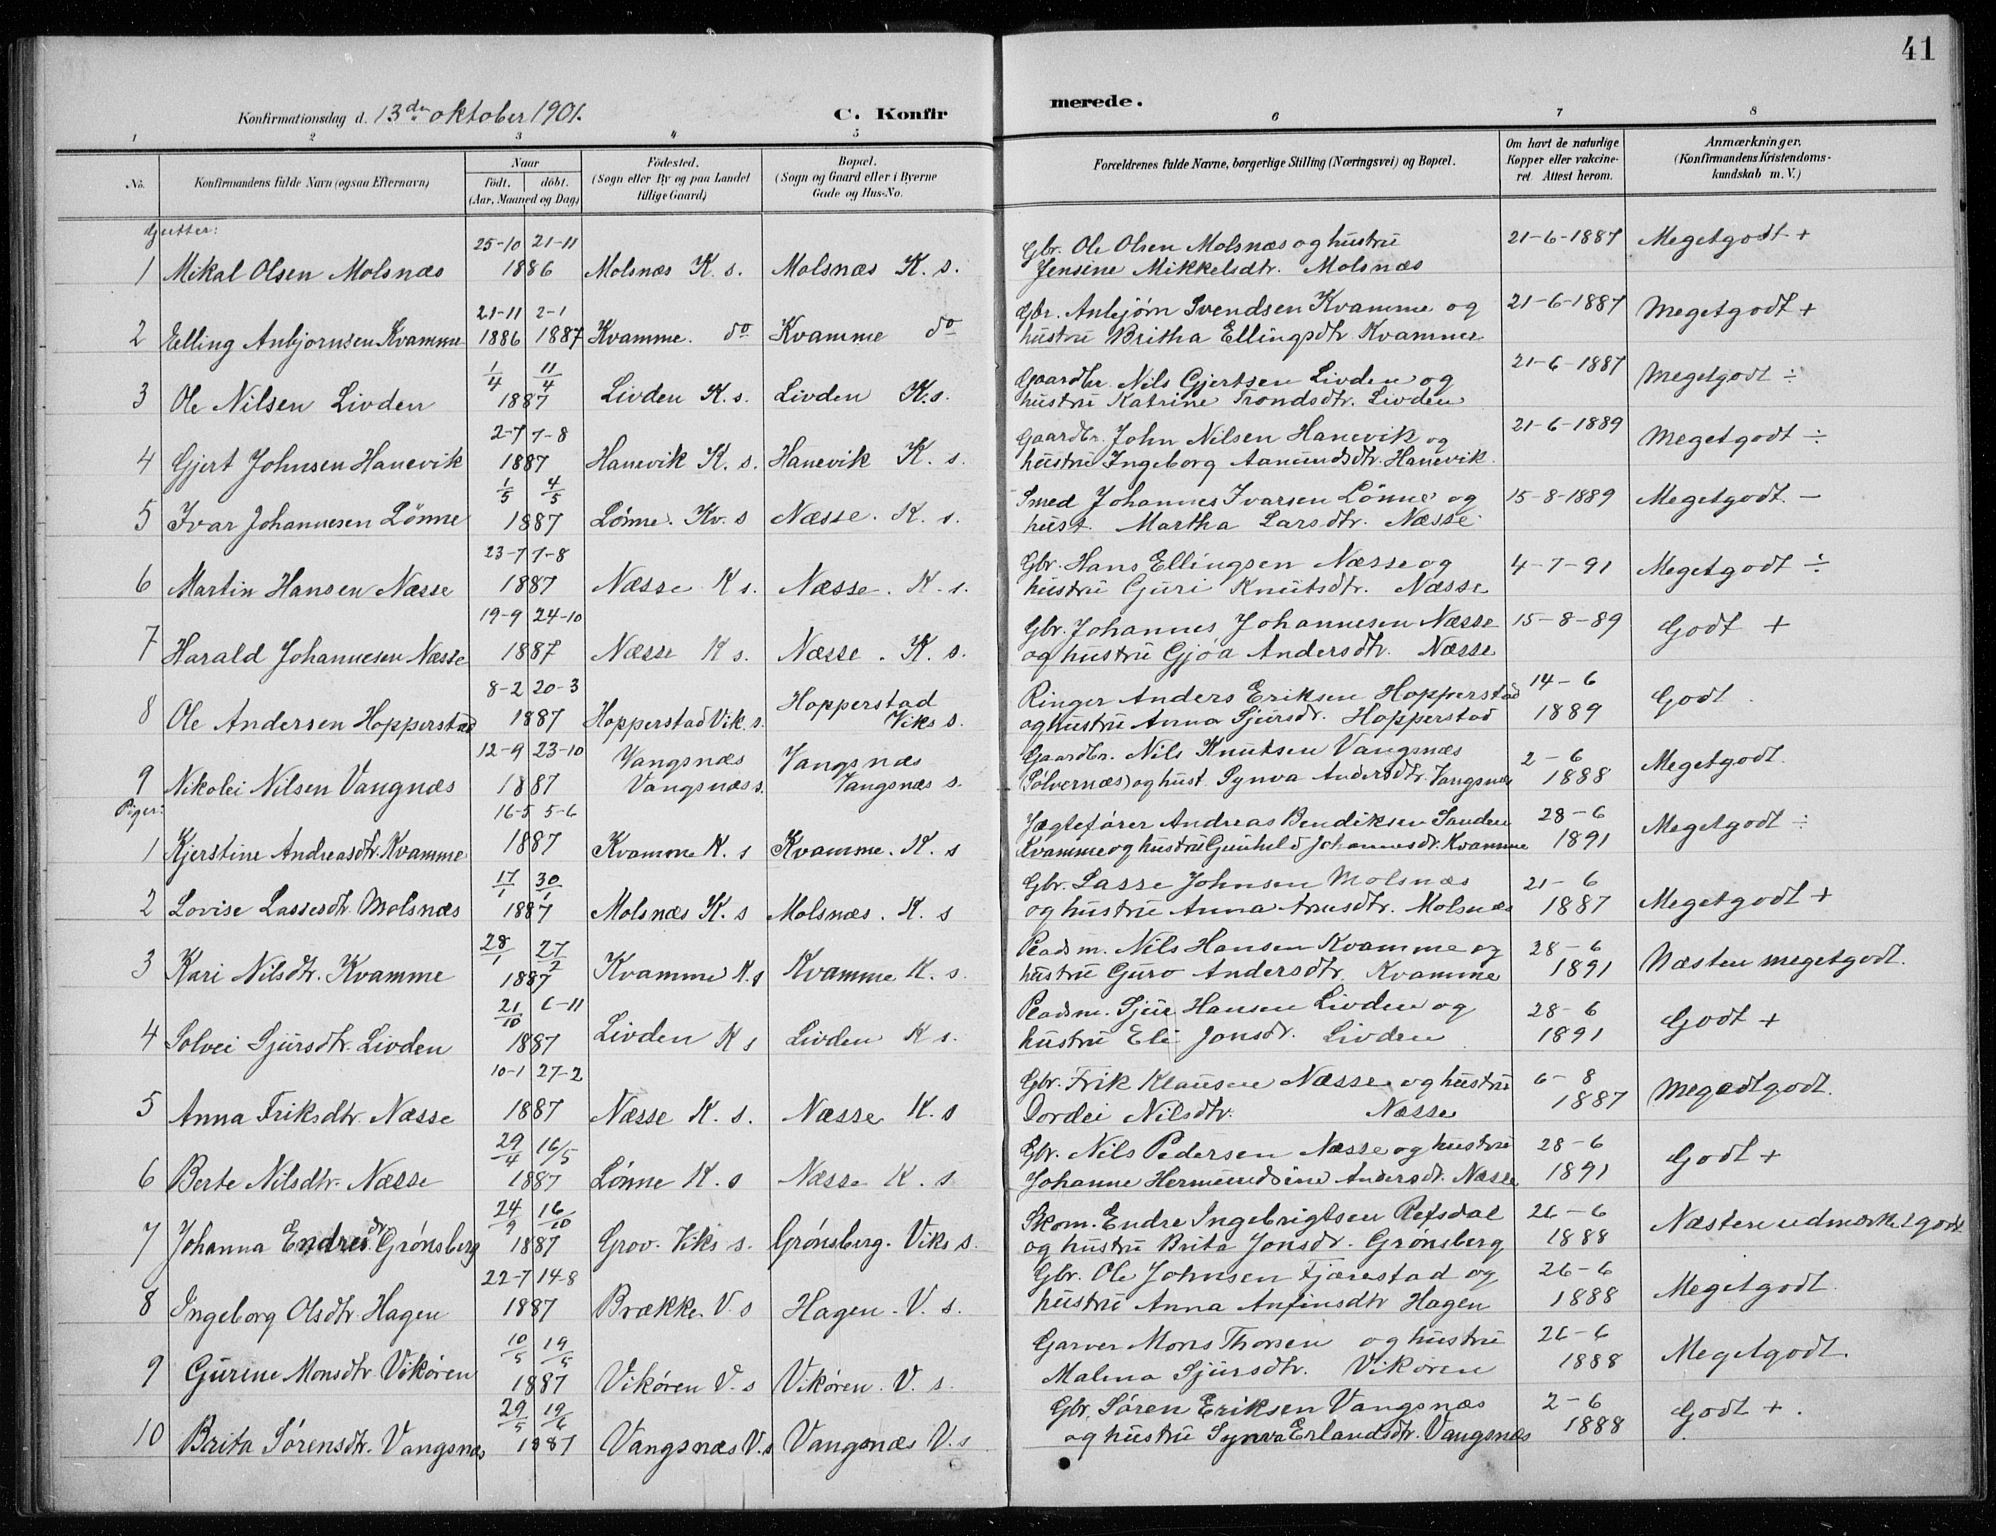 41
Konfirmationsdag d. 13de oktober 1901.
C. Konfirmerede.
1 2 3 4 5 6 7 8
No.
Konfirmandens fulde Navn (ogsaa Efternavn)
Naar
födt. döbt.
(Aar, Maaned og Dag)
Födested.
(Sogn eller By og paa Landet
tillige Gaard)
Bopæl.
(Sogn og Gaard eller i Byerne
Gade og Hus-No.
Forældrenes fulde Navne, borgerlige Stilling (Næringsvei) og Bopæl.
Om havt de naturlige
Kopper eller vakcine-
ret. Attest herom.
Anmærkninger.
(Konfirmandens Kristendoms-
kundskab m. V.)
Gutter:
25-10 21-11 Gbr. Ole Olsen Molsnæs og hustru 21-6-1887 Megetgodt +
1 Mikal Olsen Molsnæs 1886 Molsnæs K. s. Molsnæs K. s. Jensine Mikkelsdtr. Molsnæs
21-11 2-1 Gbr. Anbjørn Svendsen Kvamme og 21-6-1887 Megetgodt +
2 Elling Anbjornsen Kvamme 1886 1887 Kvamme. do Kvamme do hustru Britha Ellingsdtr. Kvamme
1/4 11/4 Gaardbr. Nils Gjertsen Livden og 21-6-1887 Megetgodt ÷
3 Ole Nilsen Livden 1887 Livden K. s. Livden K.s. hustru Katrine Trondsdtr. Livden
2-7 7-8 Gaardbr. John Nilsen Hanevik og 21-6-1889 Megetgodt ÷
4 Gjert Johnsen Hanevik 1887 Hanevik K. s. Hanevik K. s. hustru Ingeborg Aamundsdtr. Hanevik.
1/5 4/5 Smed Johannes Ivarsen Lönne og 15-8-1889 Megetgodt —
5 Ivar Johannesen Lönne 1887 Lönne. Kv. s Næsse. K. s. hust. Martha Larsdtr. Næsse
23-7 7-8 Gbr. Hans Ellingsen Næsse og 4-7-91 Megetgodt ÷
6 Martin Hansen Næsse 1887 Næsse K s. Næsse. K. s. hustru Guri Knutsdtr. Næsse
19-9 24-10 Gbr. Johannes Johannesen Næsse 15-8-89 Godt +
7 Harald Johannesen Næsse 1887 Næsse K s. Næsse. K. s. og hustru Gjøa Andersdtr. Næsse
8-2 20-3 Hopperstad Ringer Anders Eriksen Hopperstad 14-6 Godt.
8 Ole Andersen Hopperstad 1887 Hopperstad Vik. s. Viks s. og hustru Anna Sjursdr. Hopperstad 1889
12-9 23-10 Vangsnæs Vangsnæs Gaardbr. Nils Knutsen Vangsnæs 2-6 Megetgodt.
9 Nikolei Nilsen Vangnæs 1887 Vangsnæs s. Vangsnæs s. (Sølvernæs) og hust. Synva Andersdtr. Vangsnæs 1888
Piger:
16-5 5-6 Jægtefører Andreas Bendiksen Sanden 28-6 Megetgodt ÷
1 Kjerstine Andreasdtr. Kvamme 1887 Kvamme K. s Kvamme. K. s Kvamme og hustru Gunhild Johannesdr. Kvamme 1891
17/1 30/1 Gbr. Lasse Johnsen Molsnæs 21-6 Megetgodt +
2 Lovise Lassesdtr. Molsnæs 1887 Molsnæs K. s Molsnæs. K. s og hustru Anna Arnesdtr. Molsnæs 1887
28/1 27/2 Pladsm. Nils Hansen Kvamme og 28-6 Næsten megetgodt.
3 Kari Nilsdtr. Kvamme 1887 Kvamme K. s Kvamme K. s. hustru Guro Andersdtr. Kvamme 1891
21/10 6-11 Pladsm. Sjur Hansen Livden og 28-6 Godt +
4 Solvei Sjursdtr. Livden 1887 Livden K s Livden K s. hustru Eli Jonsdr. Livden 1891
10-1 27-2 Gbr. Frik Klausen Næsse og hustru 6-8 Megedtgodt.
5 Anna Friksdtr. Næsse 1887 Næsse K. s. Næsse K. s Dordei Nilsdtr. Næsse 1887
29/4 16/5 Gbr. Nils Pedersen Næsse og hustru 28-6 Godt +
6 Berte Nilsdtr. Næsse 1887 Lønne K. s Næsse K. s Johanne Hermundsine Andersdr. Næsse 1891
24/9 16/10 Skom. Endre Ingebrigtsen Refsdal 26-6 Næsten udmerket godt
7 Johanna Endresdr. Grønsberg 1887 Grov. Viks s. Grønsberg. Viks s. og hustru Brita Jonsdr. Grønsberg 1888
22-7 14-8 Gbr. Ole Johnsen Fjærestad og 26-6 Megetgodt.
8 Ingeborg Olsdtr. Hagen 1887 Brække. V. s Hagen. V. s. hustru Anna Anfinsdtr Hagen 1888
10/5 19/5 Garver Mons Thorsen og hustru 26-6 Megetgodt.
9 Gurine Monsdtr Vikören 1887 Vikören V. s Vikören. V. s. Malena Sjursdtr. Vikören 1888
29/5 19/6 Gbr. Søren Eriksen Vangsnæs 2-6 Godt +.
10 Brita Sørensdtr. Vangsnæs 1887 Vangsnæs V. s Vangsnæs V. s og hustru Synva Erlandsdtr. Vangsnæs 1888